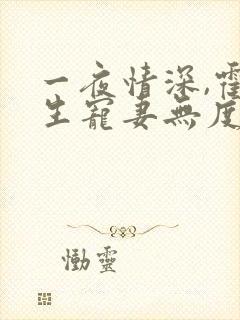 一夜情深,霍
生寵妻無度
慟靈